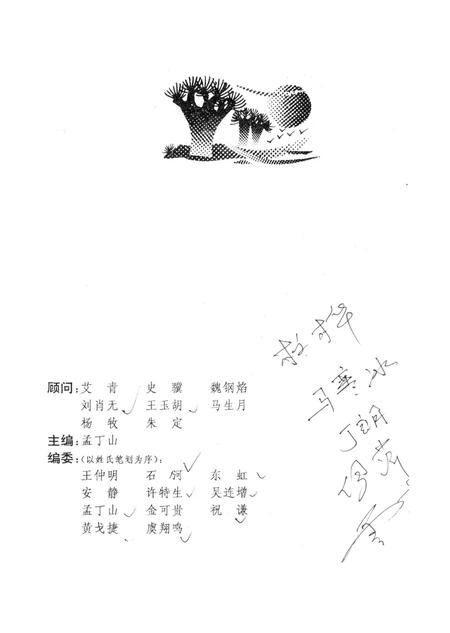 顾问：艾 青 史 骥 魏钢焰
刘肖无 王玉胡 马生月
杨 牧 朱 定
主编：孟丁山
编委：(以姓氏笔划为序)：
王仲明 石 河 东 虹
安 静 许特生 吴连增
孟丁山 金可贵 祝 谦
黄戈捷 虞翔鸣
马寒冰